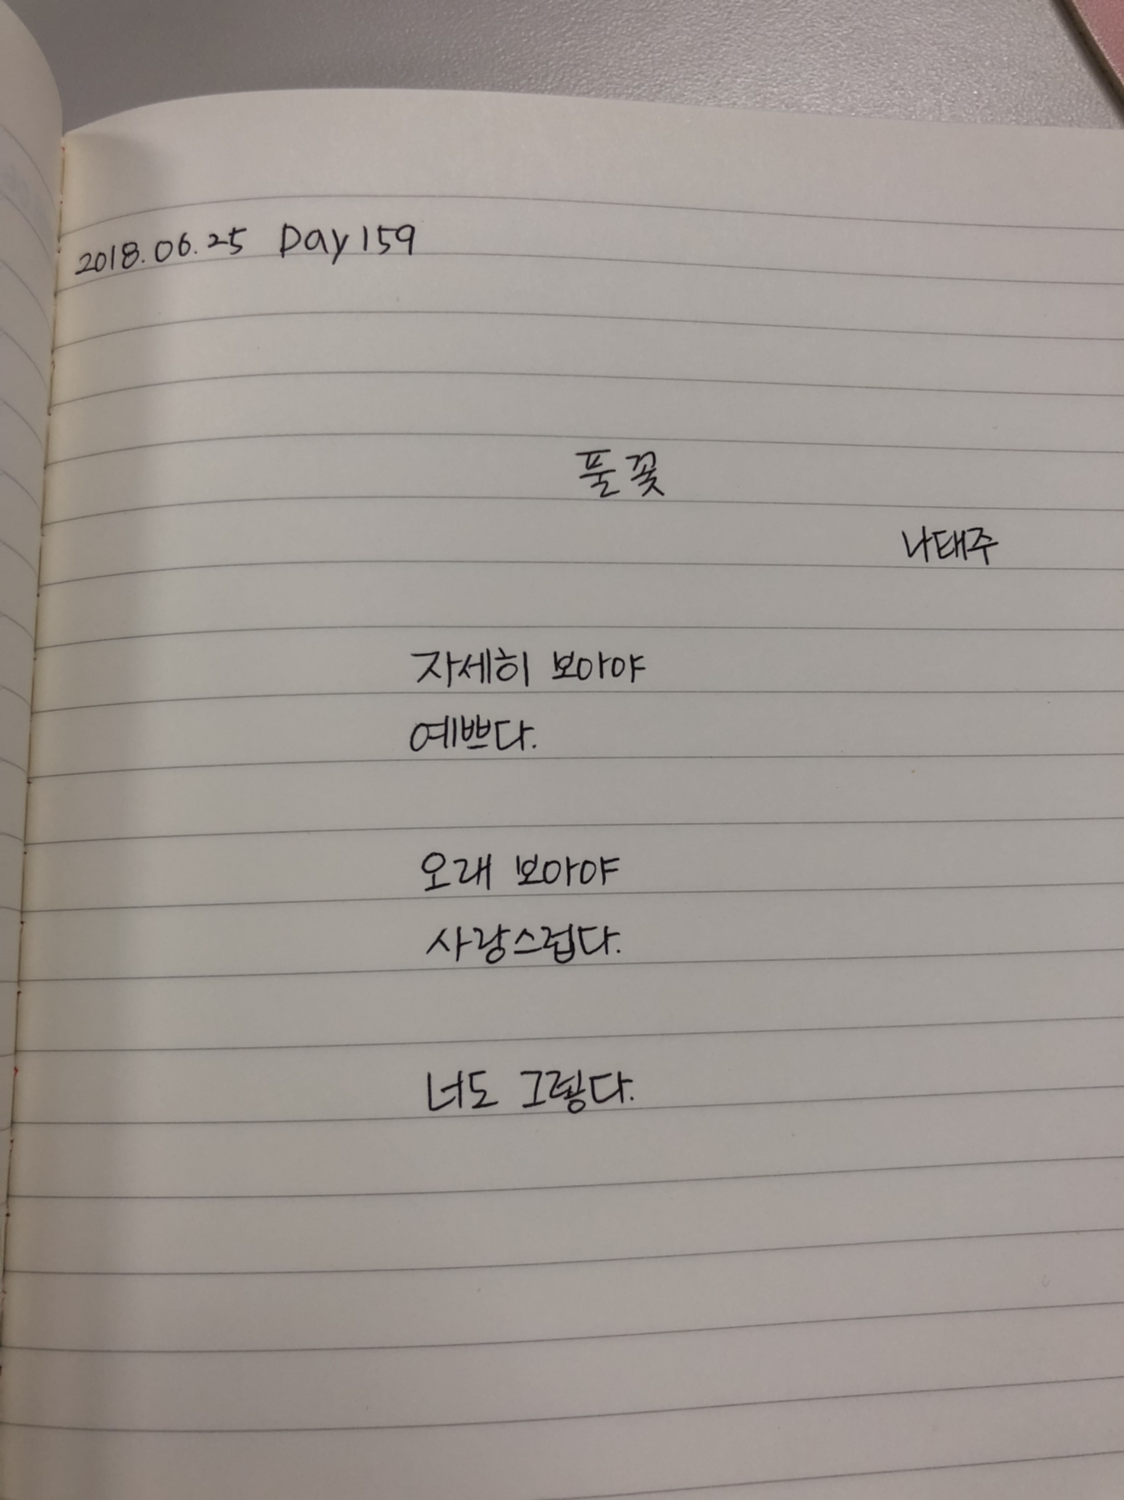 2018.06.25 Day 159
풀꽃
나태주
자세히 보아야
예쁘다.
오래 보아야
사랑스럽다.
너도 그렇다.